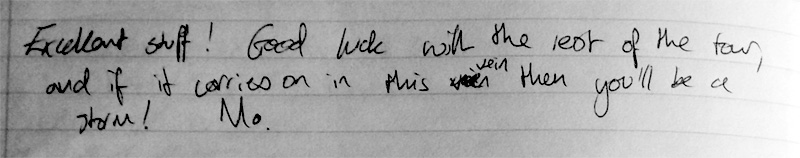 Excellent stuff! Good luck with the rest of the tour,
and if it carries on in this vein then you'll be a
storm! Mo.